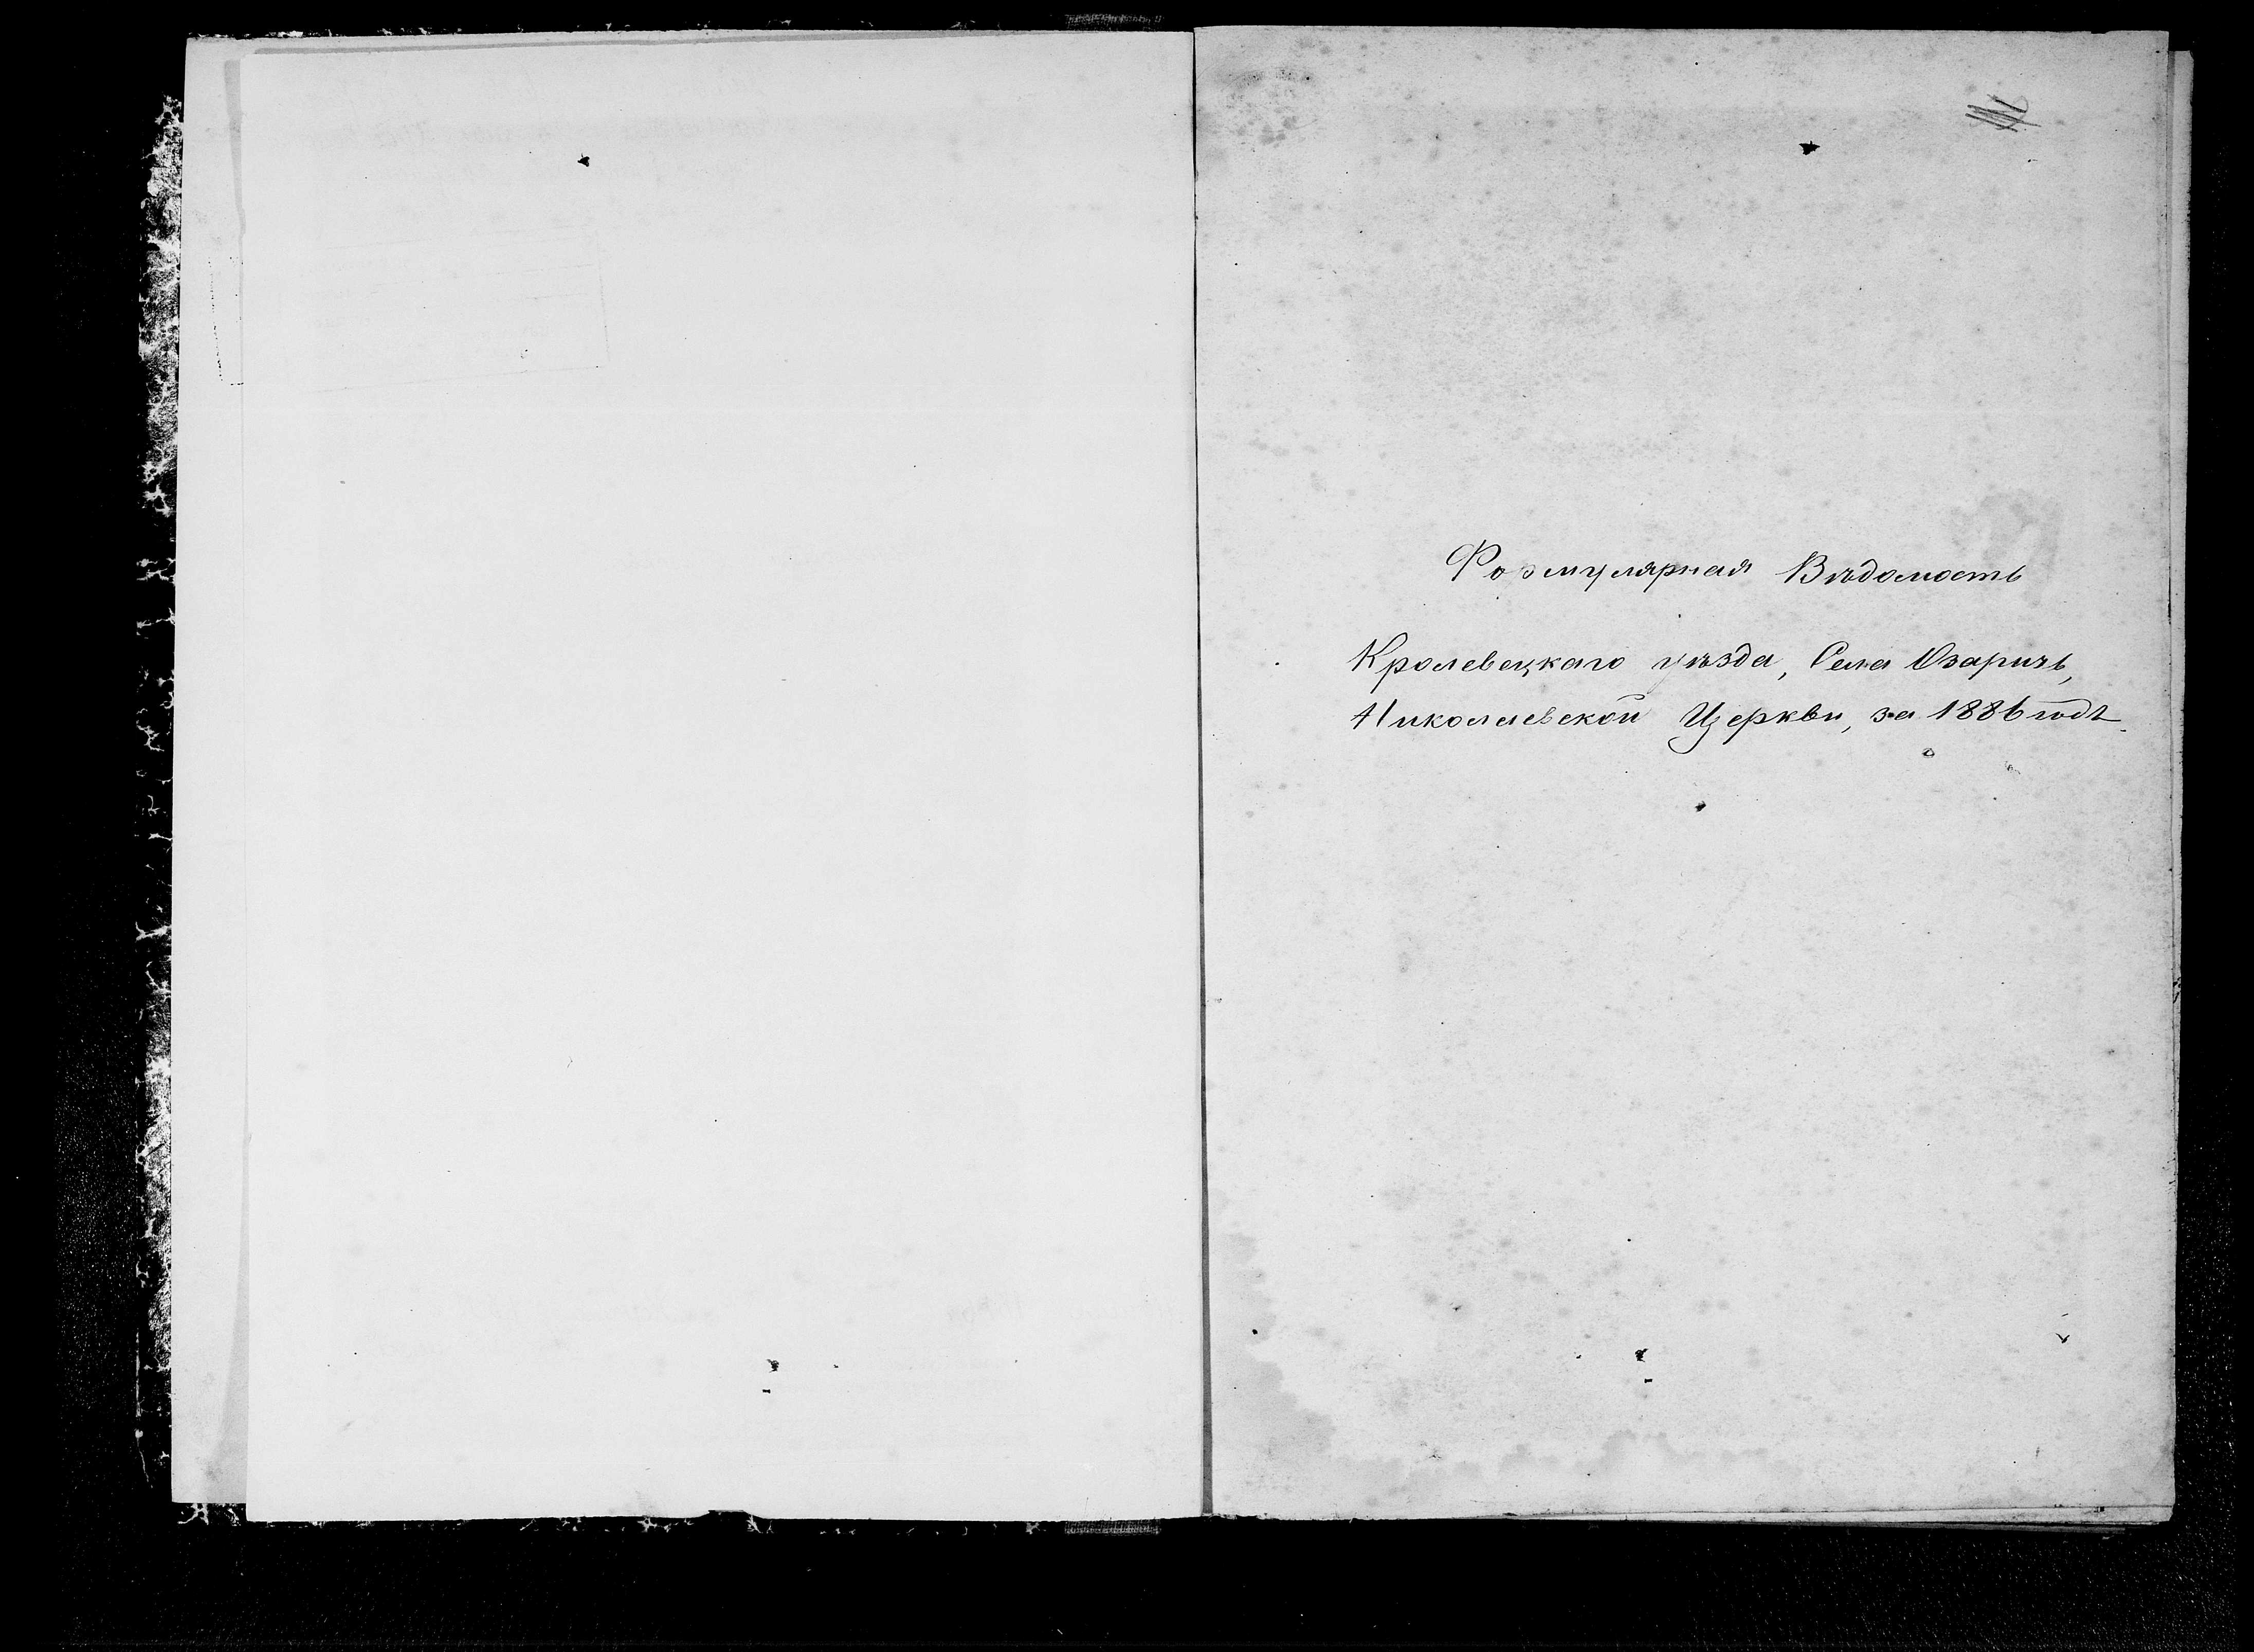 Формулярная Вѣдомость
Кролевецкаго уѣзда, Села Озаричъ,
Николаевской Церкви, за 1886 годъ.